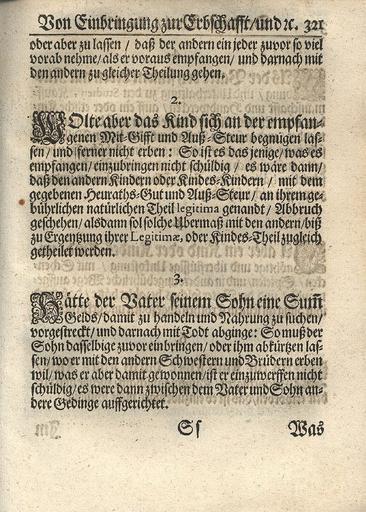 Von Einbringung zur Erbschafft/und ꝛc. 321
oder aber zu lassen / daß der andern ein jeder zuvor so viel
vorab nehme/als er voraus empfangen/ und darnach mit
den andern zu gleicher Theilung gehen.
2.
WOlte aber das Kind sich an der empfan-
genen Mit-Gifft und Auß-Steur begnügen las-
sen/und ferner nicht erben: So ist es das jenige/was es
empfangen/einzubringen nicht schüldig / es wäre dann/
daß den andern Kindern oder Kindes-Kindern / mit dem
gegebenen Heuraths-Gut und Auß-Steur/ an ihrem ge-
bührlichen natürlichen Theil legitima genandt/ Abbruch
geschehen/alsdann sol solche Ubermaß mit den andern/biß
zu Ergentzung ihrer Legitimæ, oder Kindes-Theil zugleich
getheilet werden.
3.
HÄtte der Vater seinem Sohn eine Sum̃
Gelds/damit zu handeln und Nahrung zu suchen/
vorgestreckt/und darnach mit Todt abginge: So muß der
Sohn dasselbige zuvor einbringen/oder ihm abkürtzen las-
sen/wo er mit den andern Schwestern und Brüdern erben
wil/was er aber damit gewonnen/ist er einzuwerffen nicht
schüldig/es were dann zwischen dem Vater und Sohn an-
dere Gedinge auffgerichtet.
Sſ Was